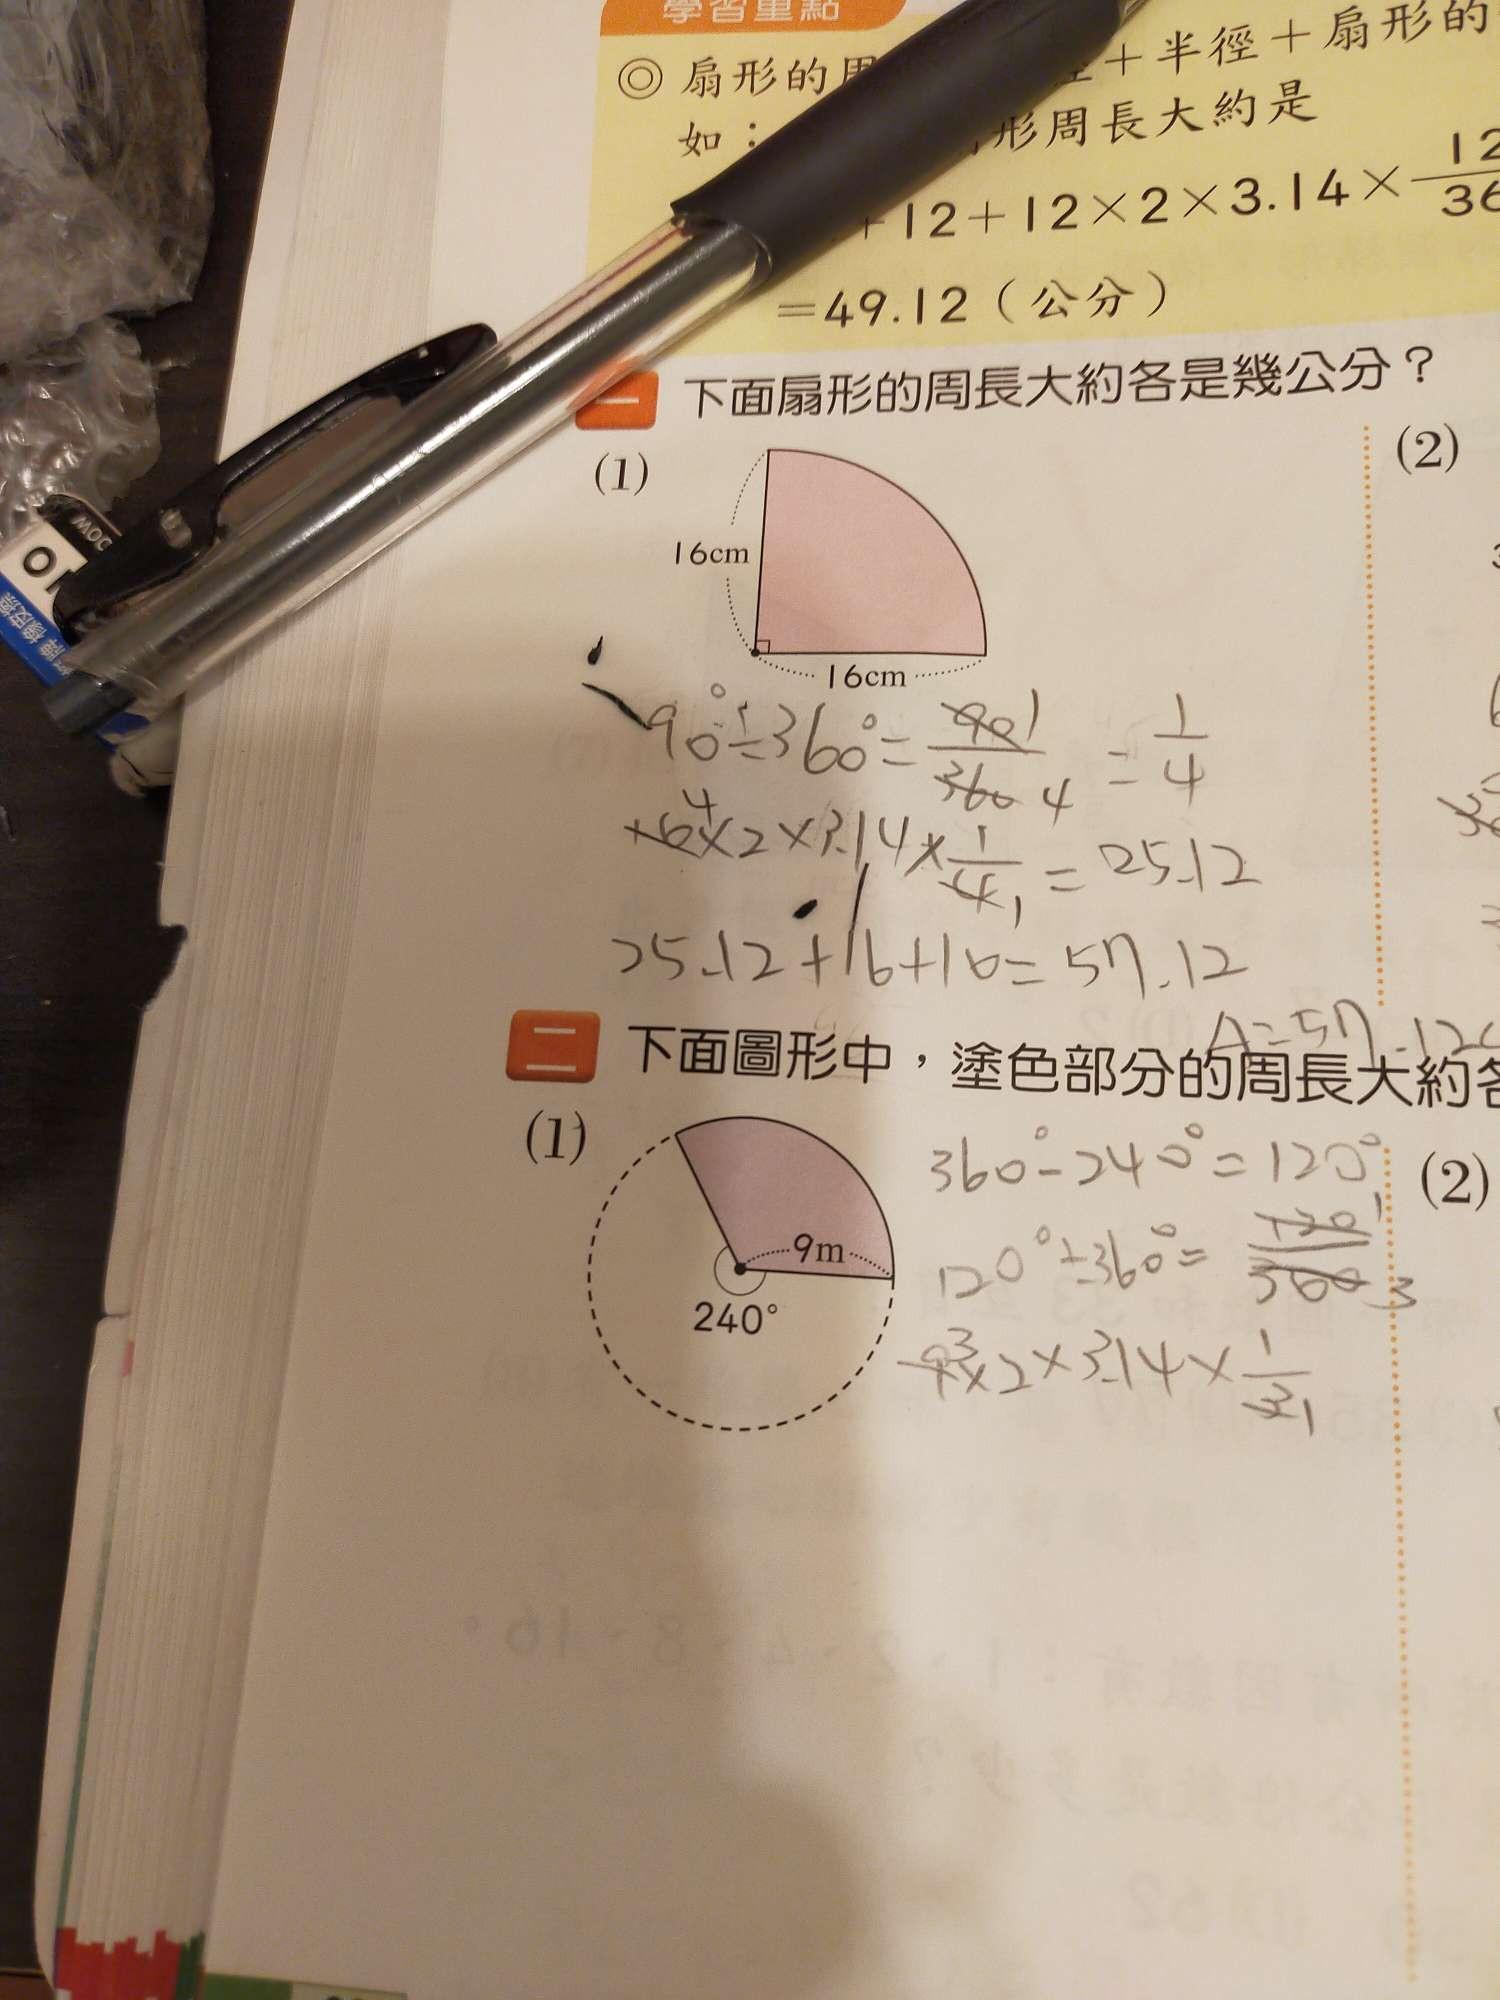 學習重點
◎ 扇形的周 徑＋半徑＋扇形的
如： 形周長大約是
+12+12×2×3.14×12/36
=49.12（公分）
一 下面扇形的周長大約各是幾公分？
(1)
(2)
16cm
16cm
90°÷360°=90/360 1 4 =1/4
16 4×2×3.14×1/4 1 =25.12
25.12+16+16=57.12
A=57.12c
二 下面圖形中，塗色部分的周長大約各
(1)
(2)
9m
240°
360°-240°=120°
120°÷360°=120/360 1 3
9 3×2×3.14×1/3 1
橡皮擦
10